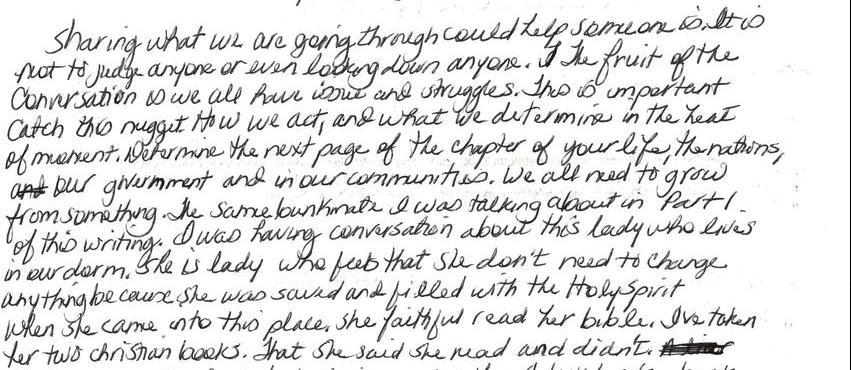 Sharing what we are going through could help someone is. It is
not to judge anyone or even looking down anyone. I The fruit of the
Conversation is we all have issue and struggles. This is important
Catch this nugget How we act, and what we determine in the heat
of moment. Determine the next page of the chapter of your life, the nations,
and our givernment and in our communities. We all need to grow
from something. The same bunkmate I was talking about in Part 1
of this writing. I was having conversation about this lady who lives
in our dorm. She is lady who feels that she don't need to change
anything because she was saved and filled with the Holy Spirit
when she came into this place. She faithful read her bible. I've taken
her two christian books. That she said she read and didn't.